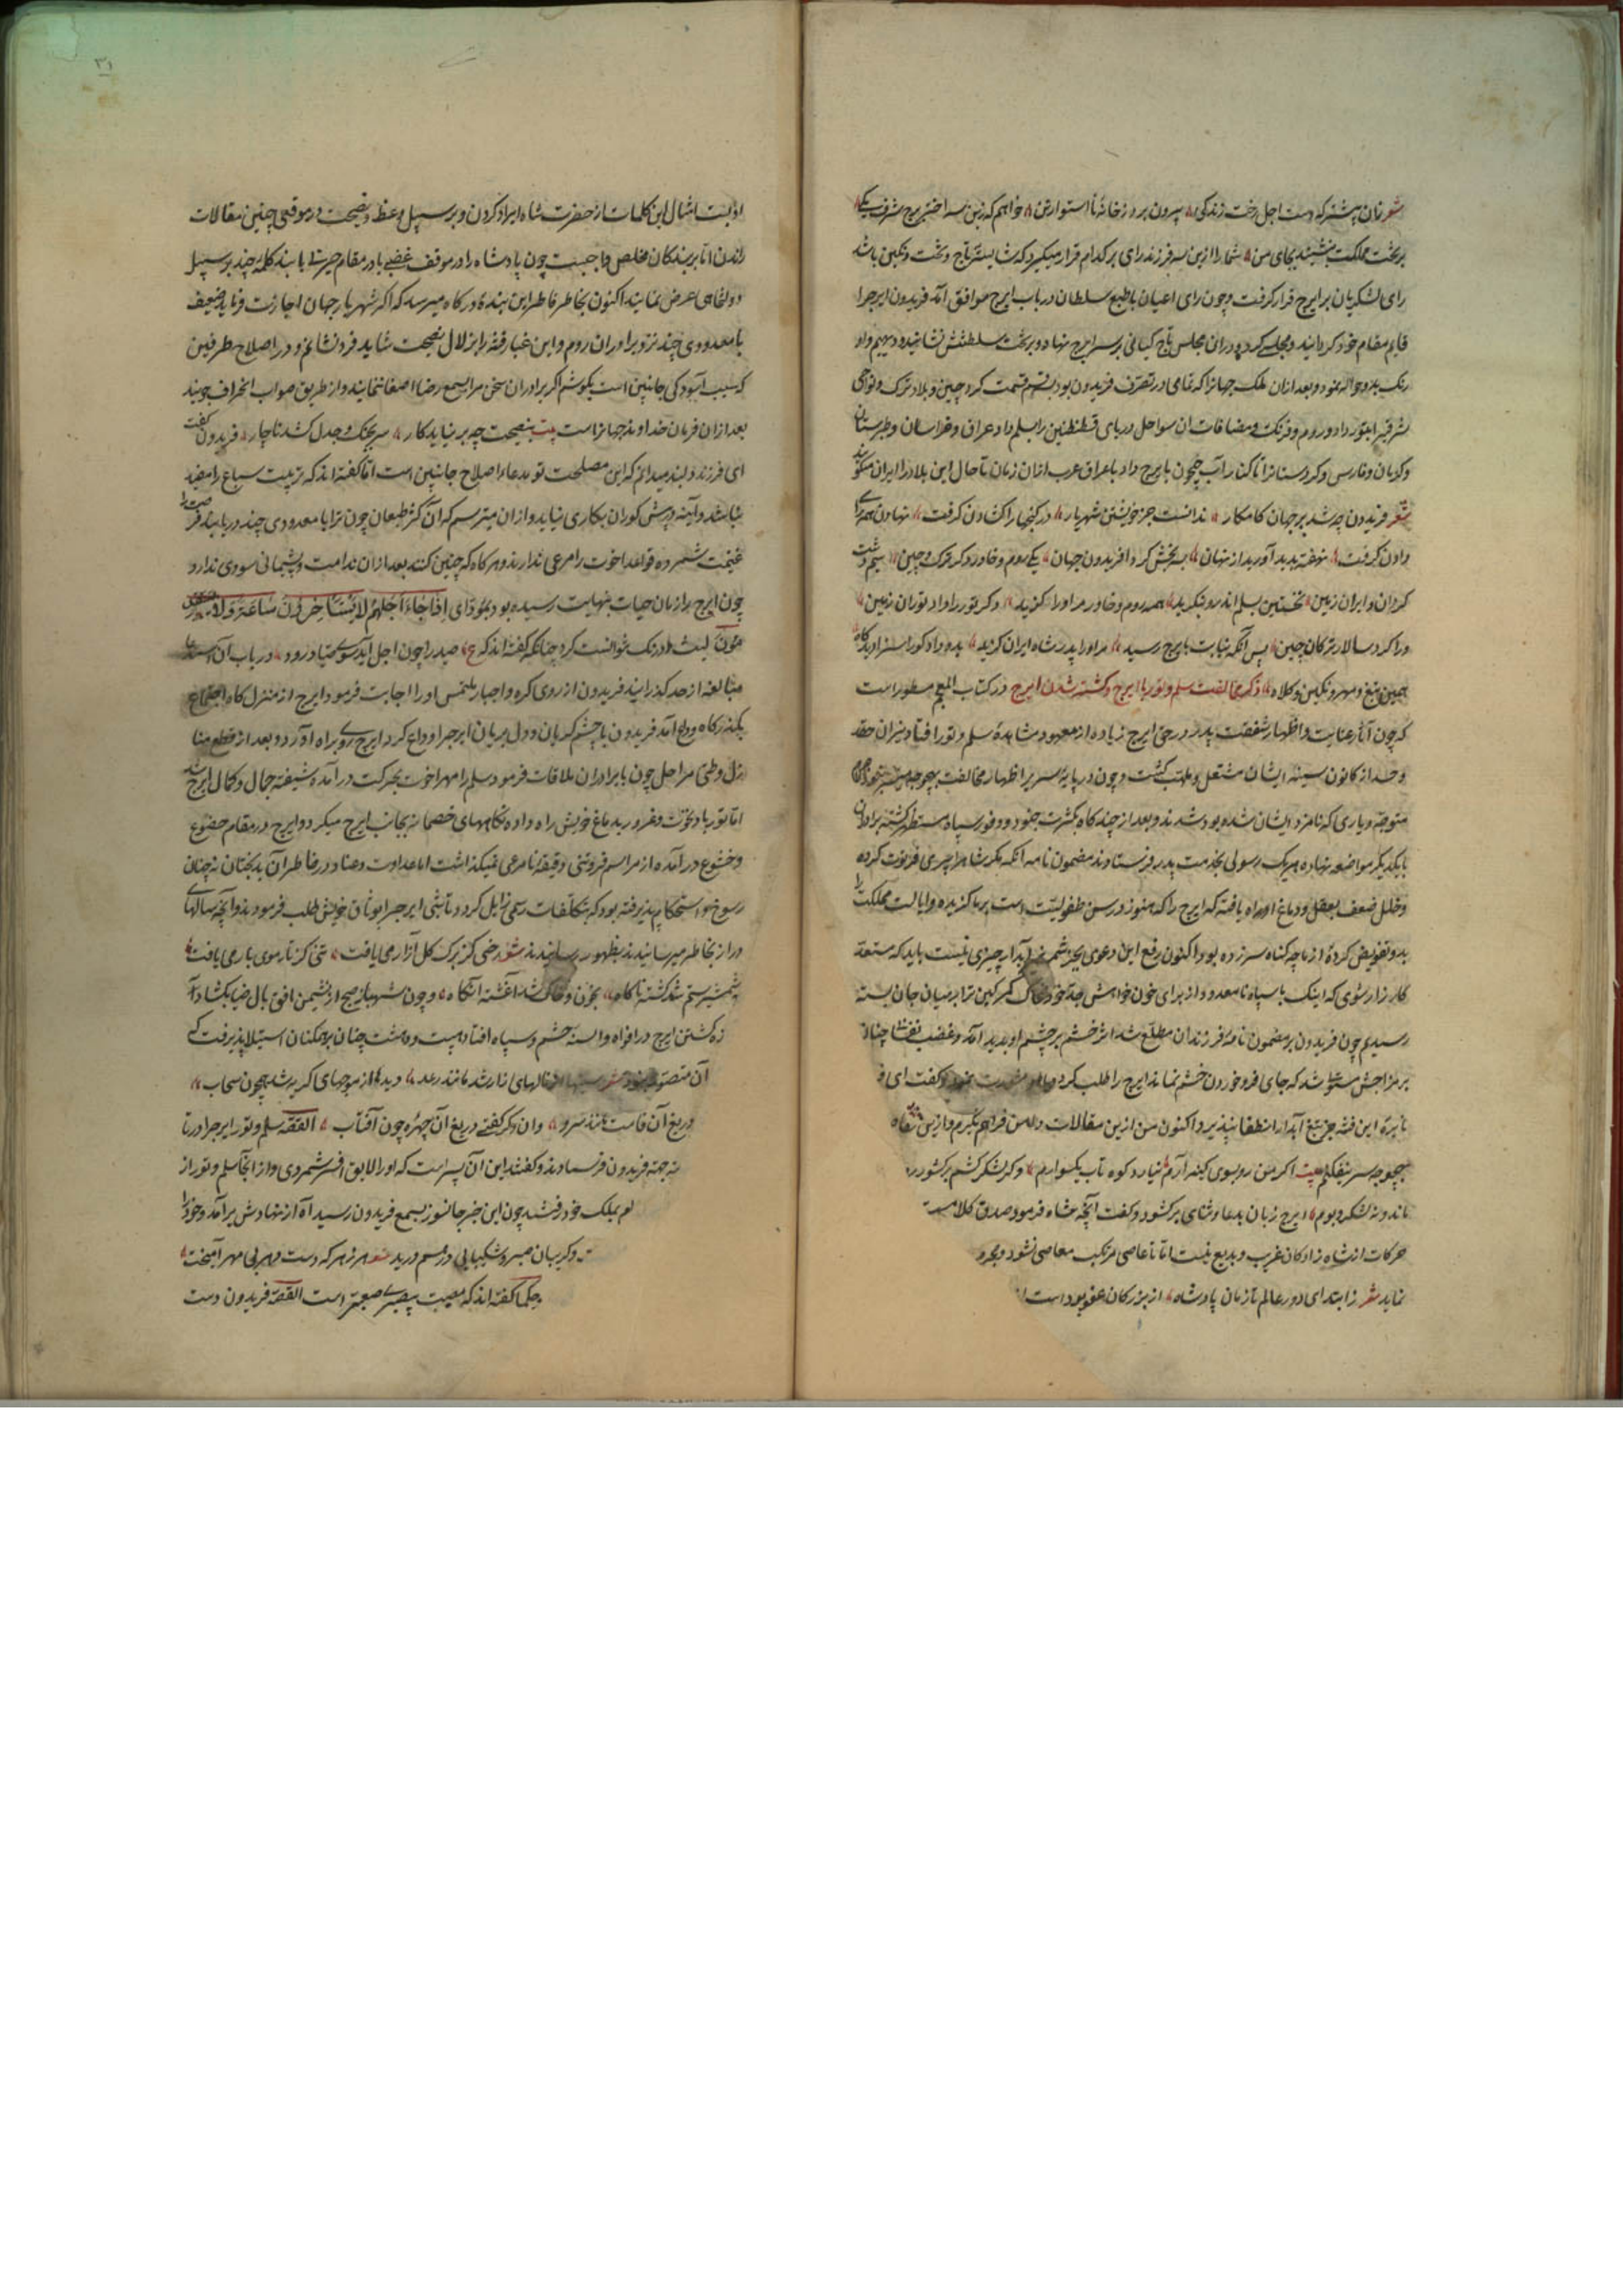 شعر زان پیشتر که دست اجل رخت زندگی بیرون برد ز خانهٔ نا استوار تن خواهم که زین سه اختر برج شرف یکی
بر تخت مملکت بنشیند بجای من شما را ازین سه فرزند رای بر کدام قرار میگیرد که شایستهٔ تاج و تخت و نگین باشد
رای لشکریان بر ایرج قرار گرفت و چون رای اعیان با طبع سلطان در باب ایرج موافق آمد فریدون ایرج را
قایم مقام خود گردانید و مجلسی کرد و در آن مجلس تاج کیانی بر سر ایرج نهاد و بر تخت سلطنتش نشانید و دیهیم و او
رنک بدو حواله نمود و بعد از ان ملک جهانرا که تمامی در تصرف فریدون بود بسه قسم قسمت کرد چین و بلاد ترک و نواحی
شرقیرا بتور داد و روم و فرنک و مضافات آن سواحل دریای قسطنطین را بسلم داد عراق و خراسان و طبرستان
و کرمان و فارس و کردستانرا تا کنار آب جیحون بایرج داد با عراق عرب از ان زمان تا حال این بلاد را ایران میگویند
شعر فریدون چو شد بر جهان کامکار ندانست جز خویشتن شهریار در گنجها را گشادن گرفت نهادن همه رای
دادن گرفت نهفته پدید آورید از نهان بسه بخش کرد آفریدون جهان یکی روم و خاور دگر ترک و چین سیم دشت
گردان و ایران زمین نخستین بسلم اندرون بنگرید همه روم و خاور مر او را گزید دگر تور را داد توران زمین
ورا کرد سالار ترکان چین پس آنگه نیابت بایرج رسید مر او را پدر شاه ایران گزید بدو داد کورا سزا دید گاه
همین تیغ و مهر و نگین و کلاه ذکر مخالفت سلم و تور با ایرج و کشته شدن ایرج در کتاب المعجم مسطور است
که چون آثار عنایت و اظهار شفقت پدر در حق ایرج زیاده از معهود مشاهدهٔ سلم و تور افتاد نیران حقد
و حسد از کانون سینه ایشان مشتعل و ملتهب گشت و چون در پایهٔ سریر اظهار مخالفت بهیچوجه میسر نبود
متوجه دیاری که نامزد ایشان شده بود شدند و بعد از چند گاه بکثرت جنود و وفور سپاه مستظهر گشته برادران
با یکدیگر مواضعه نهاده هریک رسولی بخدمت پدر فرستادند مضمون نامه آنکه مگر شاه را پیری فرتوت کرده
و خلل ضعف بعقل و دماغ او راه یافته که ایرج را که هنوز در سن طفولیت است بر ما گزیده و ایالت مملکت را
بدو تفویض کرده از ما چه گناه سر زده بود اکنون رفع این دعوی بجز شمشیر آبدار چیزی نیست باید که مستعد
کارزار شوی که اینک با سپاه نامعدود از برای خون خواهش جد خود ضحاک کمر کین ترا بر میان جان بسته
رسیدیم چون فریدون بر مضمون نامهٔ فرزندان مطلع شد اثر خشم بر چشم او پدید آمد و غضب نفسانی چنان
بر مزاجش مستولی شد که جای فرو خوردن خشم نماند ایرج را طلب کرد و با او مشورت نمود و گفت ای
نایرهٔ این فتنه جز بتیغ آبدار انطفا نپذیرد اکنون من ازین مقالات دامن فراهم گیرم و ازین
بهیچوجه سر نیفکنم بیت اگر من رو بسوی کینه آرم نیارد کوه تاب یکسوارم وگر لشکر کشم بر کشور
ماند و نه لشکر و بوم ایرج زبان بدعا و ثنای بر گشود و گفت آنچه شاه فرمود صدق کلامست
حرکات از شاه زادگان غریب و بدیع نیست اما تا عاصی مرتکب معاصی نشود و مجرم
نماید شعر ز ابتدای دور عالم تا زمان پادشاه از بزرگان عفو بوداست
ادبست امثال این کلمات از حضرت شاه ایراد کردن و بر سبیل وعظ و نصیحت در موقفی چنین مقالات
راندن اما بر بندگان مخلص واجبست چون پادشاه را در موقف غضب یا در مقام حیرت یابند کلمهٔ چند بر سبیل
دولتخواهی عرض نمایند اکنون بخاطر فاطر این بندهٔ درگاه میرسد که اگر شهریار جهان اجازت فرماید ضعیف
با معدودی چند نزد برادران روم و این غبار فتنه را بزلال نصیحت شاید فرو نشانم و در اصلاح طرفین
که سبب آسودگی جانبین است بکوشم اگر برادران سخن مرا بسمع رضا اصغا ننمایند و از طریق صواب انحراف جویند
بعد از ان فرمان خداوند جهانراست بیت بنصیحت چو بر نیاید کار سر بجنک و جدل کشد ناچار فریدون گفت
ای فرزند دلبند میدانم که این مصلحت تو مدعاء اصلاح جانبین است اما گفته‌اند که تربیت سباع را مفید
نباشد و آینه پیش کوران بکاری نیاید و از ان میترسم که آن گرگ طبعان چون ترا با معدودی چند دریابند فرصت را
غنیمت شمرده قواعد اخوت را مرعی ندارند و هرگاه که چنین کنند بعد از ان ندامت و پشیمانی سودی ندارد
چون ایرج را زمان حیات بنهایت رسیده بود بمؤدای اِذَا جَاءَ اَجَلُهُمْ لَا یَسْتَأْخِرُونَ سَاعَةً وَلَا یَسْتَقْدِ
مُونَ لبث و درنک نتوانست کرد چنانکه گفته‌اند که ع صید را چون اجل آید سوی صیاد رود در باب آن استدعا
مبالغه از حد گذرانید فریدون از روی کره و اجبار ملتمس او را اجابت فرمود ایرج از منزلگاه اجتماع
بگذرگاه وداع آمد فریدون با چشم گریان و دل بریان ایرج را وداع کرد ایرج روی براه آورد و بعد از قطع منا
زل و طی مراحل چون با برادران ملاقات فرمود سلم را مهر اخوت بحرکت در آمده شیفته جمال و کمال ایرج شد
اما تور باد نخوت و غرور بدماغ خویش راه داده نگاههای خصمانه بجانب ایرج میکرد و ایرج در مقام خضوع
و خشوع در آمده از مراسم فروتنی دقیقهٔ نامرعی نمیگذاشت اما عداوت و عناد در خاطر آن بدبختان نه چنان
رسوخ و استحکام پذیرفته بود که بتکلفات رسمی زایل گردد تا شبی ایرج را بوثاق خویش طلب فرمودند و آنچه سالهای
دراز بخاطر میرسانیدند بظهور رسانیدند شعر رخی کز برگ گل آزار می یافت تنی کز تار موی بار می یافت
بشمشیر ستم شد کشته ناگاه بخون و خاک شد آغشته آنگاه و چون شهباز صبح از نشیمن افق بال ضیا بگشاد آ
زه کشتن ایرج در افواه و السنه حشم و سپاه افتاد هیبت و دهشت چنان بر همگنان استیلا پذیرفت که
آن متصور نبود شعر سینها از نالهای زار شد مانند رعد دیدها از موجهای گریه شد همچون سحاب
دریغ آن قامت مانند سرو وان دگر گفتی دریغ آن چهرهٔ چون آفتاب القصه سلم و تور ایرج را در تا
فریدون فرستادند و گفتند این آن پسر است که او را لایق افسر شمردی و از آنجا سلم و تور از
بملک خود رفتند چون این خبر جانسوز بسمع فریدون رسید آه از نهادش بر آمد و خود را
و گریبان صبر و شکیبایی در هم درید شعر زهر که دست دهر بی مهر آمیخت
حکما گفته‌اند که مصیبت پسر صعبتر است القصه فریدون دست